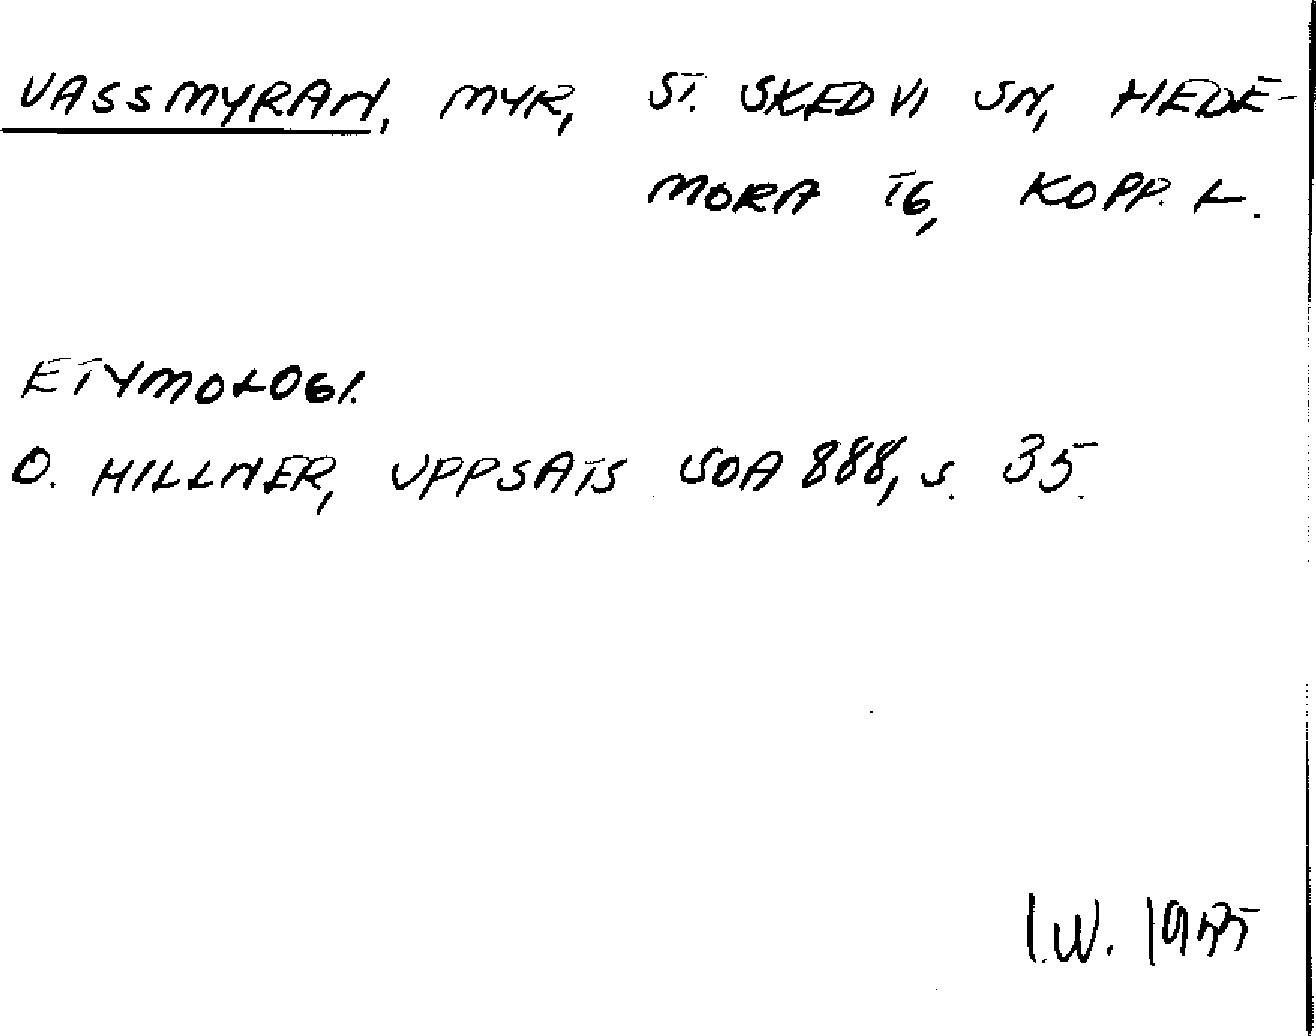 VASSMYRAN, MYR, ST. SKEDVI SN, HEDE-
MORA TG, KOPP. L.
ETYMOLOGI.
O. HILLNER, UPPSATS SOA 888, S. 35.
I.W. 1975